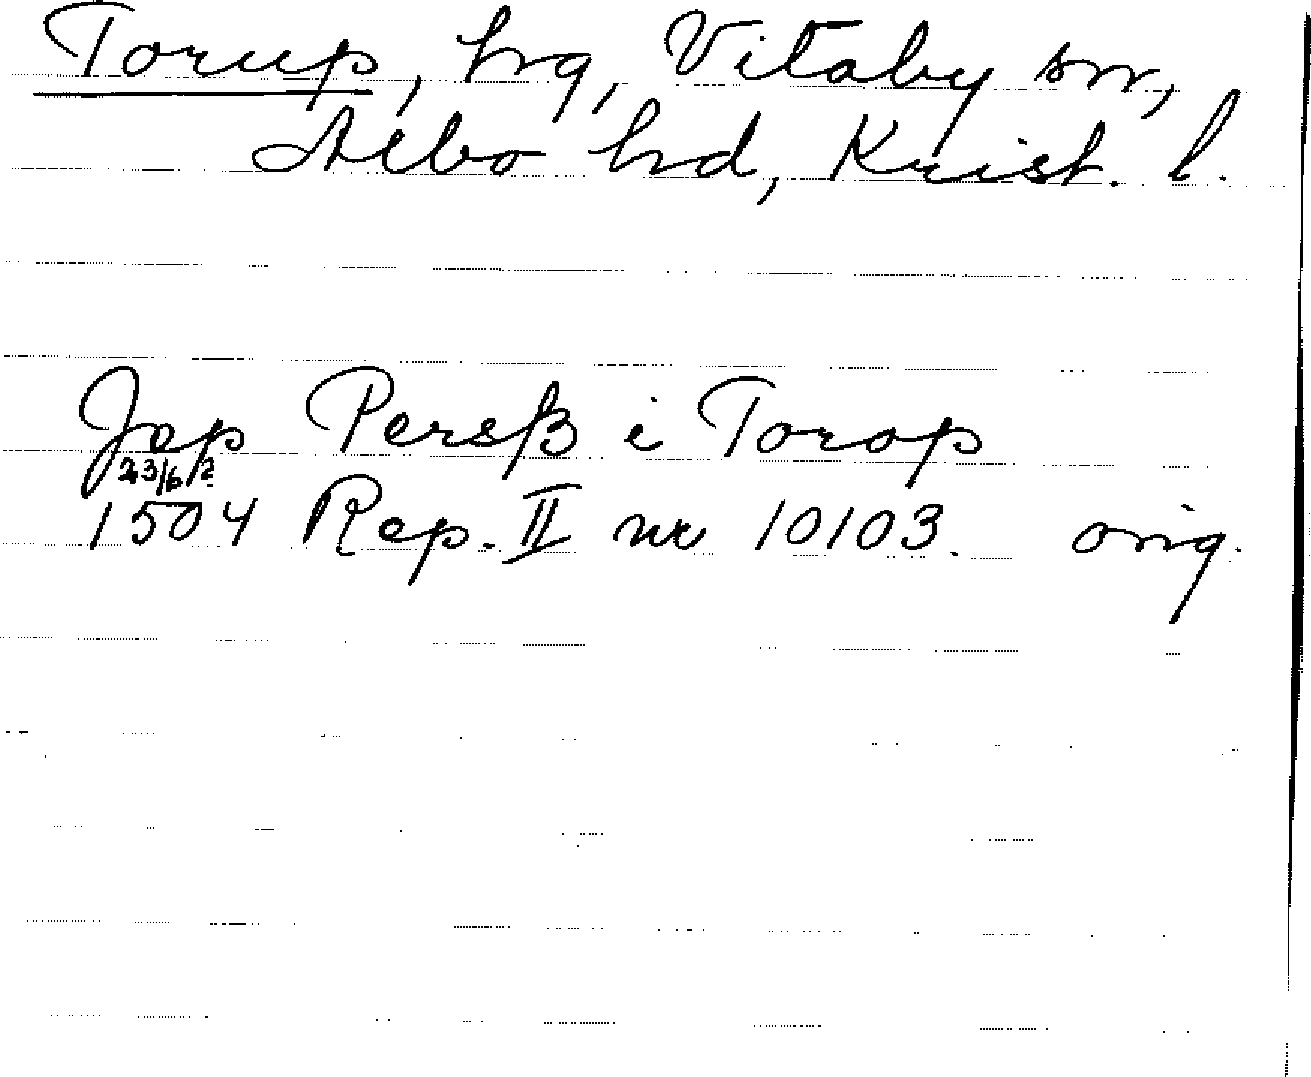 Torup, hg, Vitaby sn,
Albo hd, Krist. l.
Jep Persß i Torop
23/6 ?
1504 Rep. II nr 10103. orig.